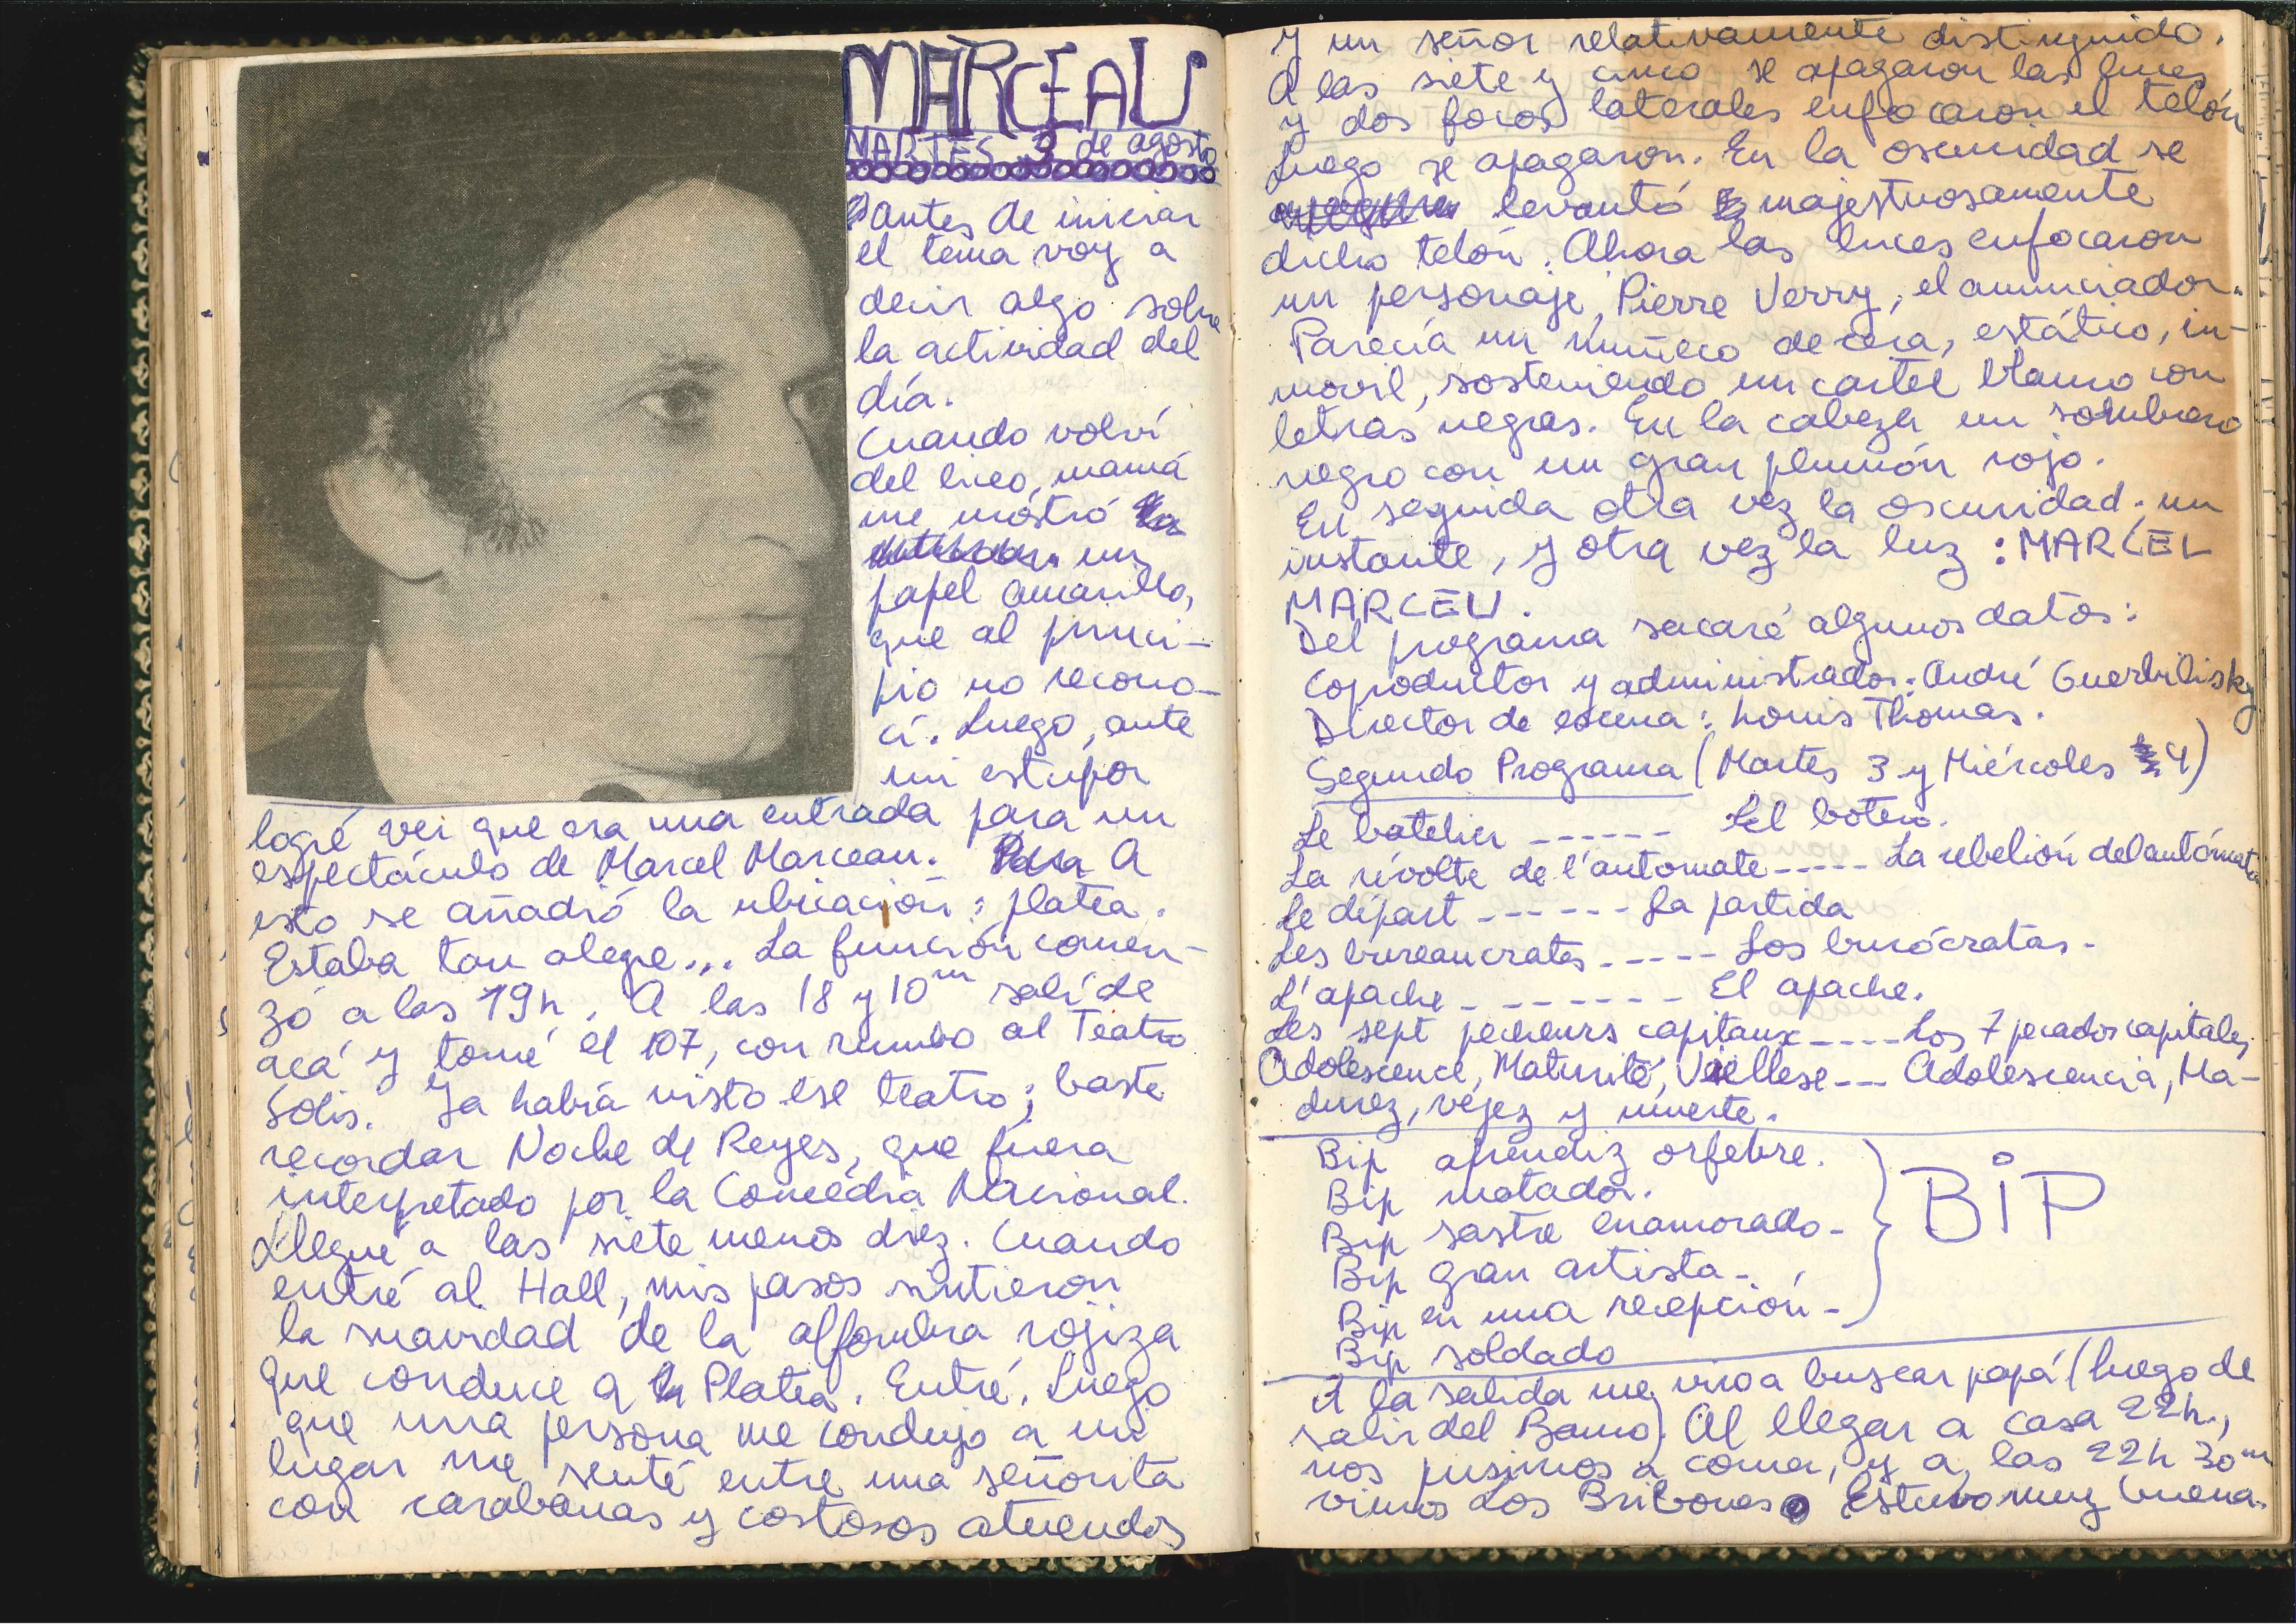 MARCEAU
MARTES 3 de agosto
Antes de iniciar
el tema voy a
decir algo sobre
la actividad del
día.
Cuando volví
del liceo, mamá
me mostró
un
papel amarillo,
que al princi-
pio no recono-
cí. Luego, ante
mi estupor
logré ver que era una entrada para un
espectáculo de Marcel Marceau. A
esto se añadió la ubicación: platea.
Estaba tan alegre... La función comen-
zó a las 19h. A las 18 y 10m salí de
acá y tomé el 107, con rumbo al Teatro
Solís. Ya había visto ese teatro; baste
recordar Noche de Reyes, que fuera
interpretado por la Comedia Nacional.
Llegué a las siete menos diez. Cuando
entré al Hall, mis pasos sintieron
la suavidad de la alfombra rojiza
que conduce a la Platea. Entré. Luego
que una persona me condujo a mi
lugar me senté entre una señorita
con carabanas y costosos atuendos
y un señor relativamente distinguido.
A las siete y cinco se apagaron las luces
y dos focos laterales enfocaron el telón
Luego se apagaron. En la oscuridad se
levantó majestuosamente
dicho telón. Ahora las luces enfocaron
un personaje, Pierre Verry, el anunciador.
Parecía un muñeco de cera, estático, in-
movil, sosteniendo un cartel blanco con
letras negras. En la cabeza un sombrero
negro con un gran plumón rojo.
En seguida otra vez la oscuridad; un
instante, y otra vez la luz: MARCEL
MARCEU.
Del programa sacaré algunos datos:
Coproductor y administrador: André Guerbilisky
Director de escena: Louis Thomas.
Segundo Programa (Martes 3 y Miércoles 4)
Le batelier ------ El botero.
La révolte de l'automate ----- La rebelión del autómata
Le départ ------ La partida
Les bureaucrates ----- Los burócratas.
L'apache ------- El apache.
Les sept pecheurs capitaux ---- Los 7 pecados capitales
Adolescence, Maturité, Vieillese --- Adolescencia, Ma-
durez, vejez y muerte.
Bip aprendiz orfebre.
Bip matador.
Bip sastre enamorado-
Bip gran artista-
Bip en una recepción-
Bip soldado
BiP
A la salida me vino a buscar papá (luego de
salir del Banco). Al llegar a casa 22h.,
nos pusimos a comer, y a las 22h 30m
vimos Los Bribones. Estuvo muy buena.